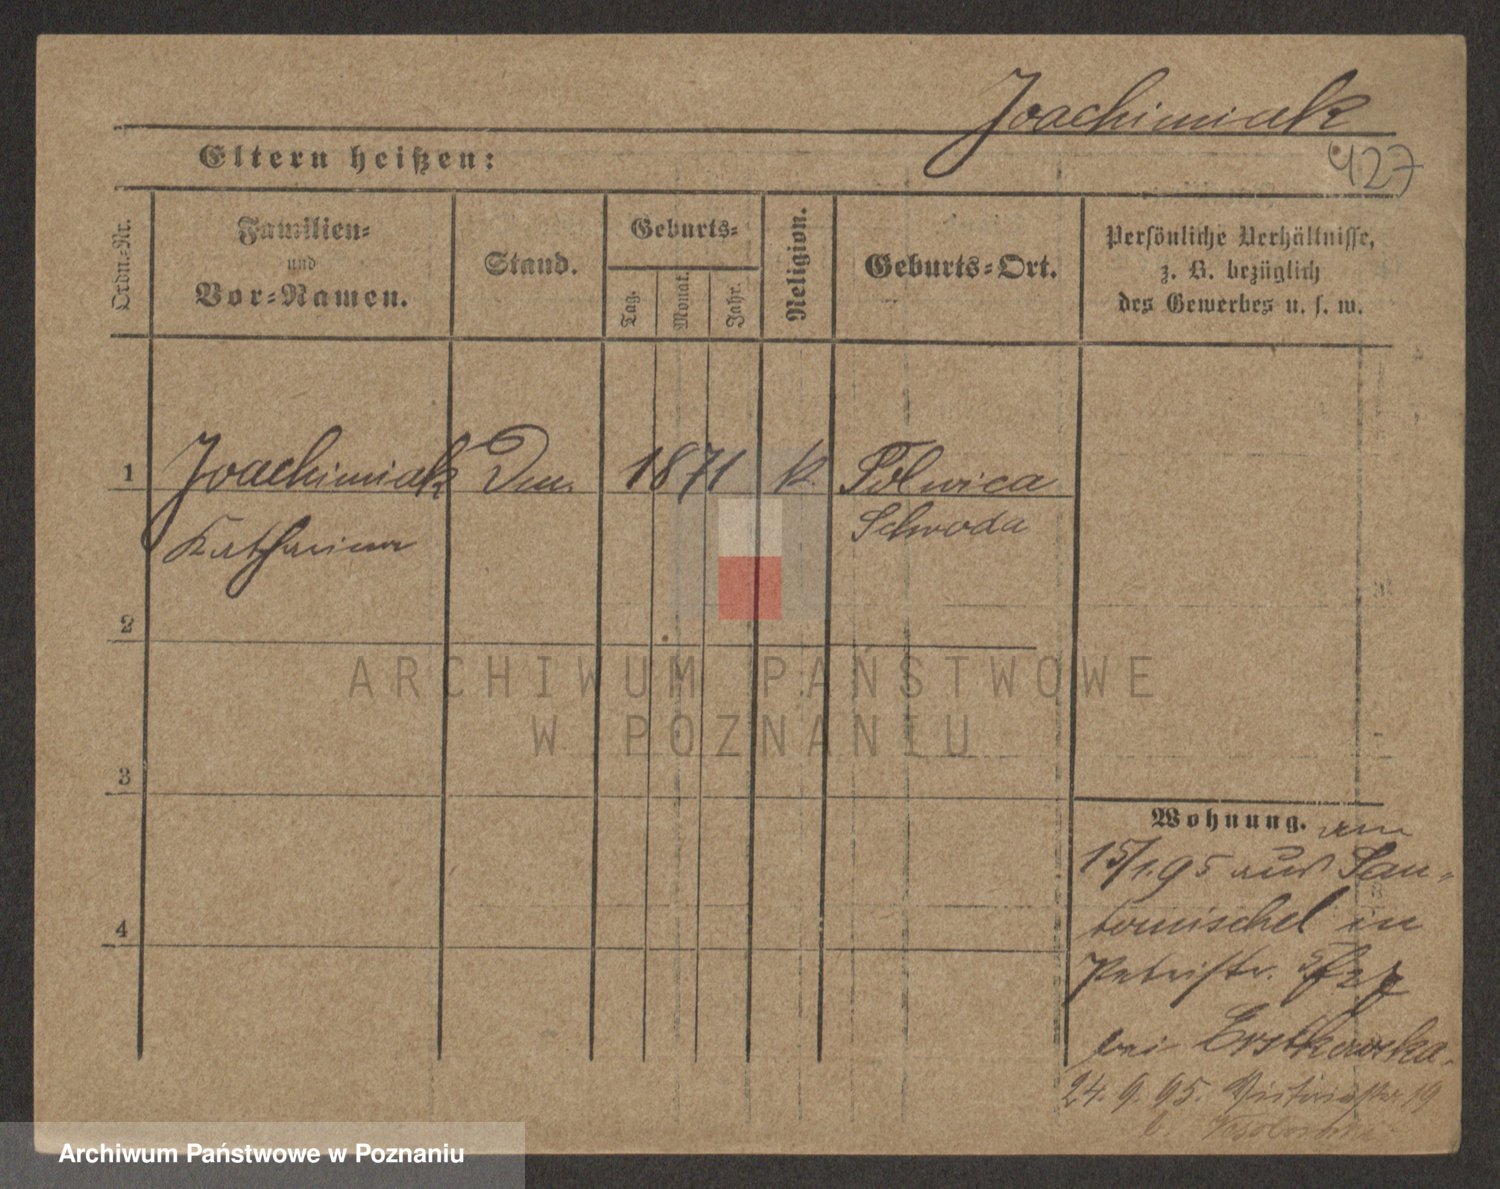 Joachimiak
427
Eltern heißen:
Ordn.-Nr.
Familien-
und
Vor-Namen.
Stand.
Geburts-
Tag.
Monat.
Jahr.
Religion.
Geburts-Ort.
Persönliche Verhältnisse,
z. B. bezüglich
des Gewerbes u. s. w.
1
Joachimiak
1871
k.
Polwica
Katharina
Schroda
2
3
4
Wohnung. am
15/1.95 aus San-
tomischel in
Petristr.
bei
24. 9. 95. Victoriastr. 19
b.
ARCHIWUM PAŃSTWOWE
W POZNANIU
Archiwum Państwowe w Poznaniu